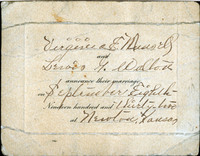 Virginia E. Russell
and
announce their marriage
on September Eighth
Nineteen hundred and Thirty two
at Newton, Kansas